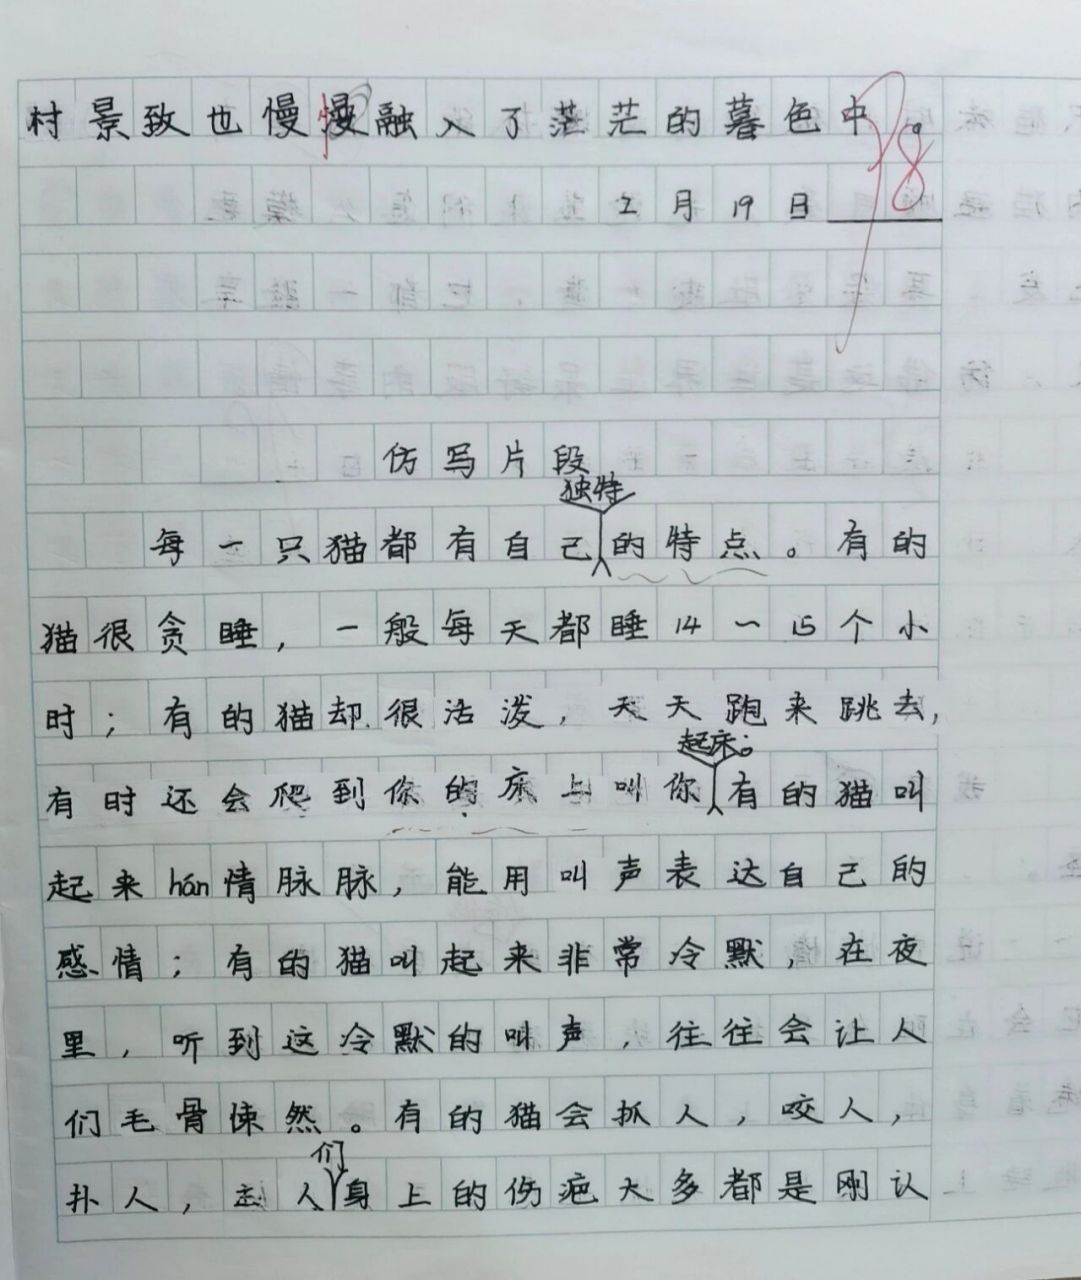 村景致也慢慢融入了茫茫的暮色中。
98
2月19日
仿写片段
独特
每一只猫都有自己的特点。有的
猫很贪睡，一般每天都睡14~15个小
时；有的猫却很活泼，天天跑来跳去，
起床；
有时还会爬到你的床上叫你有的猫叫
起来hán情脉脉，能用叫声表达自己的
感情；有的猫叫起来非常冷默，在夜
里，听到这冷默的叫声，往往会让人
们毛骨悚然。有的猫会抓人，咬人，
们
扑人，人身上的伤疤大多都是刚认